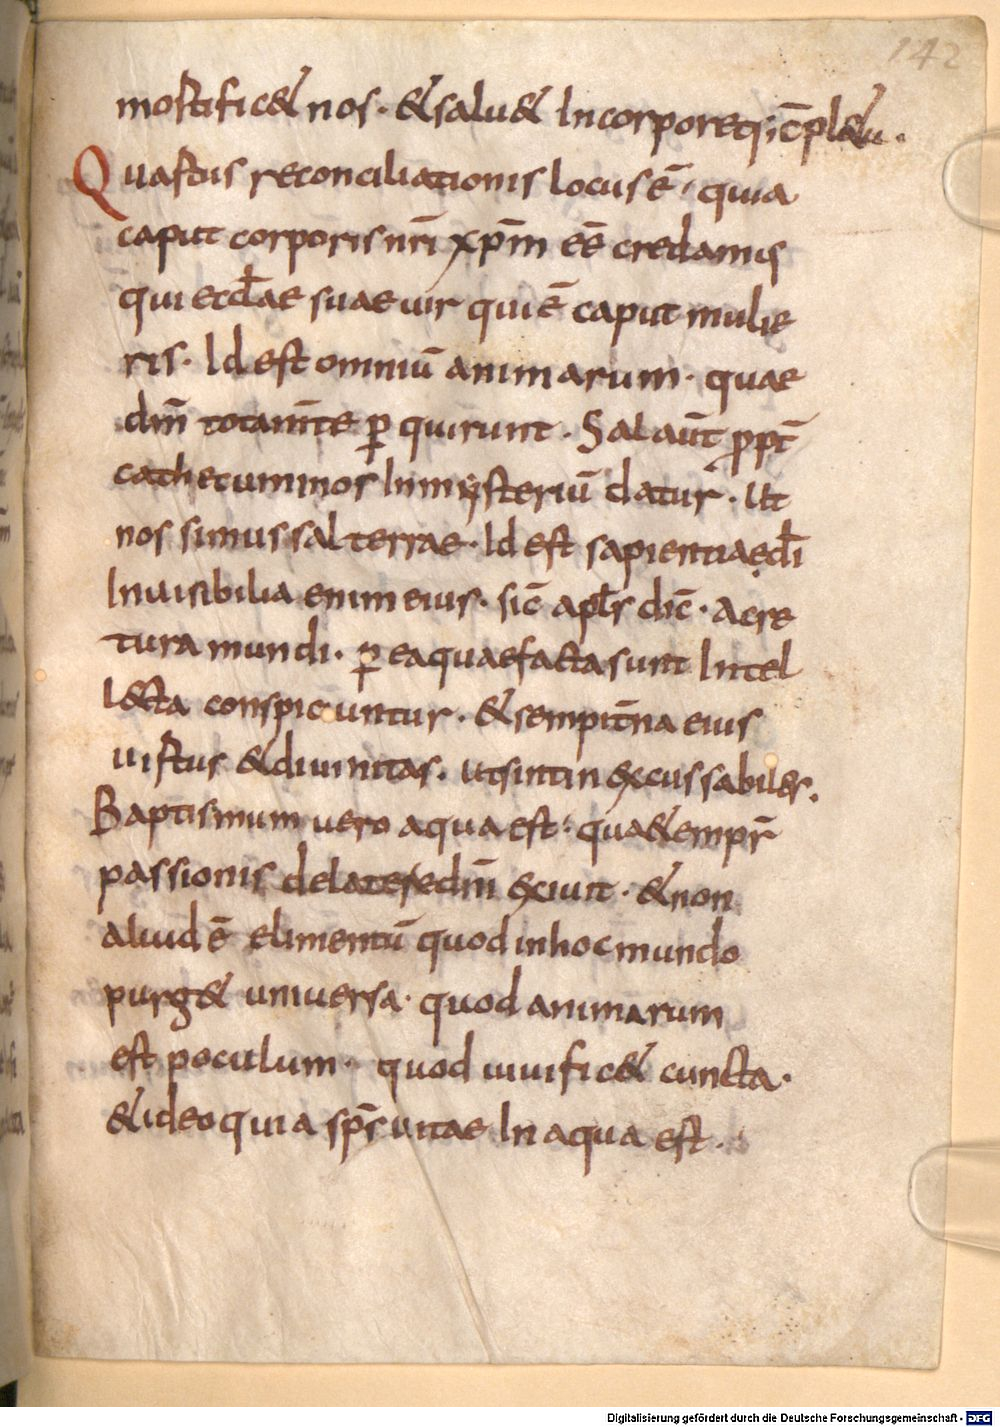 142
mortific& nos · &salu& Incorporeq;c̄pl&u ·
Quartus reconciliationis locus ē · quia
caput corporis nr̄i xp̄m eē credamus
qui eccl̄ae suae uir qui ē caput mulie
ris · Id est omniū animarum · quae
dm̄ totam̄te ꝑquirunt · Sal aūt ꝓpt̄
cathecuminos Inmysteriū datur · Ut
nos simus sal terrae · Id est sapientiae dī
Inuisibilia enim eius · sic̄ apl̄s dic̄ · Acre
tura mundi · ꝑ ea quae facta sunt Intel
l&cta conspiciuntur · & sempit̄na eius
uirtus & diuinitas · ut sint in excussabiles ·
Baptismum uero aqua est · qua&empr̄
passionis delateredn̄i exiuit · & non
aliud ē elimentū quod in hoc mundo
purg& uniuersa · quod animarum
est poculum · quod uiuific& cuncta ·
& ideo quia sp̄s uitae In aqua est ·
Digitalisierung gefördert durch die Deutsche Forschungsgemeinschaft - DFG